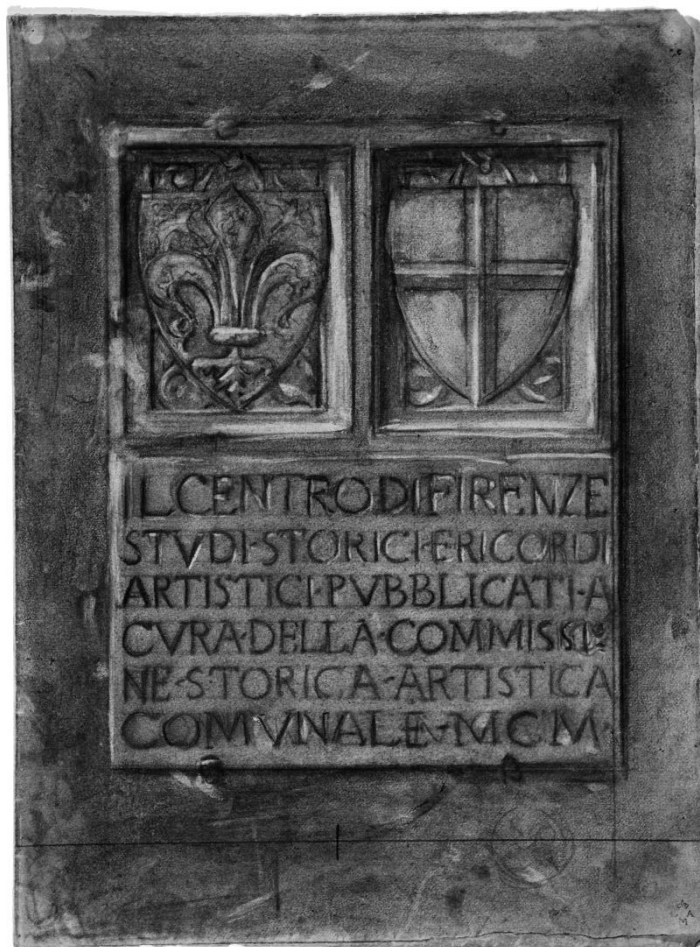 IL CENTRO DI FIRENZE
STVDI·STORICI·E RICORDI
ARTISTICI·PVBBLICATI·A
CVRA·DELLA·COMMISSIO
NE·STORICA·ARTISTICA
COMVNALE·MCM·